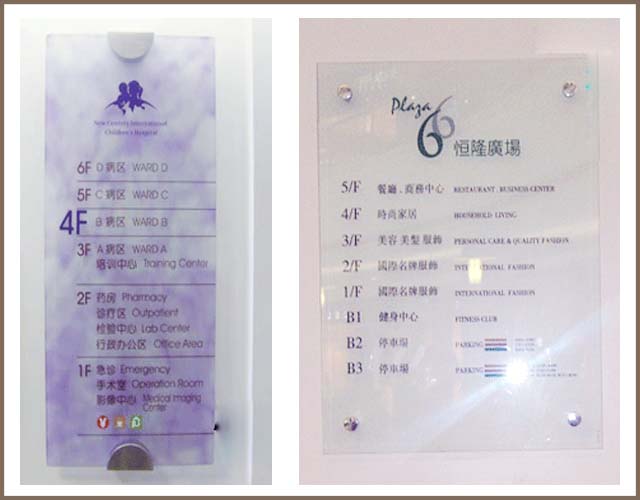 New Century International
Children's Hospital
6F D 病区 WARD D
5F C 病区 WARD C
4F B 病区 WARD B
3F A 病区 WARD A
培训中心 Training Center
2F 药房 Pharmacy
诊疗区 Outpatient
检验中心 Lab Center
行政办公区 Office Area
1F 急诊 Emergency
手术室 Operation Room
影像中心 Medical Imaging
Center
Plaza
66 恒隆廣場
5/F 餐廳．商務中心 RESTAURANT . BUSINESS CENTER
4/F 時尚家居 HOUSEHOLD LIVING
3/F 美容 美髮 服飾 PERSONAL CARE & QUALITY FASHION
2/F 國際名牌服飾 INTERNATIONAL FASHION
1/F 國際名牌服飾 INTERNATIONAL FASHION
B1 健身中心 FITNESS CLUB
B2 停車場 PARKING
B3 停車場 PARKING